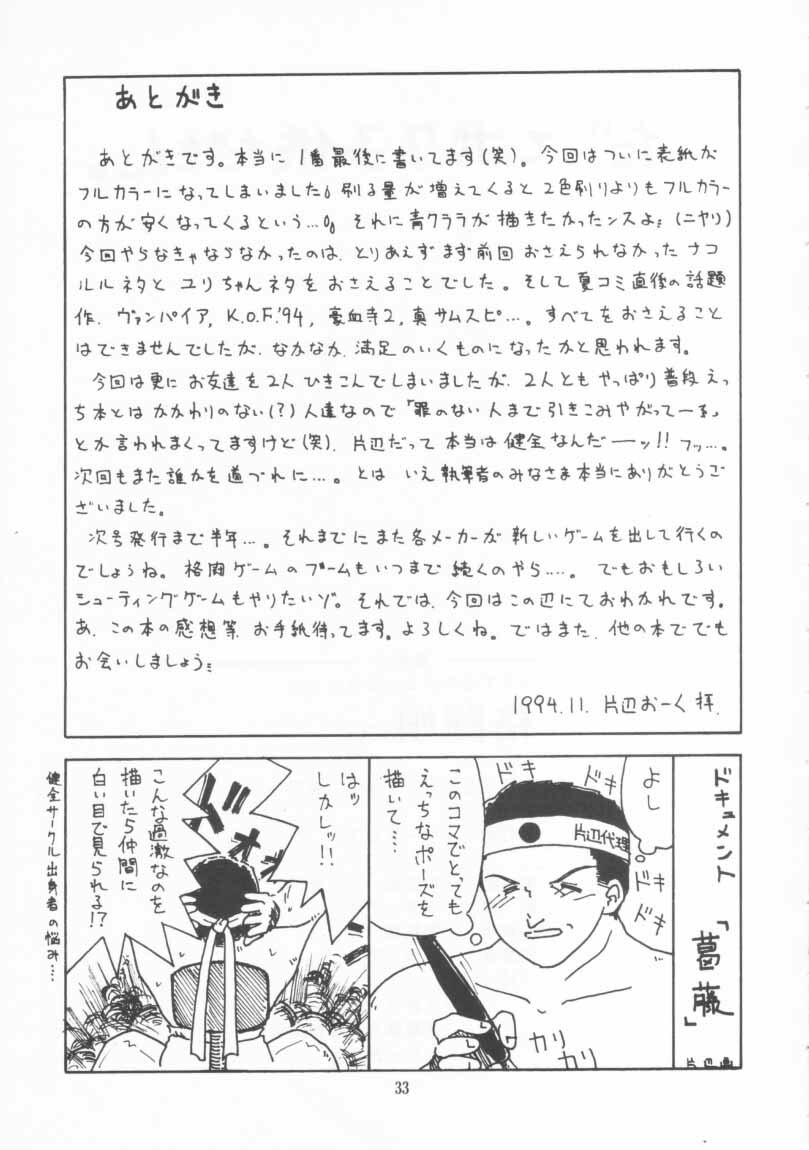 あとがき
あとがきです。本当に1番最後に書いてます(笑)。今回はついに表紙が
フルカラーになってしまいました。刷る量が増えてくると2色刷りよりもフルカラー
の方が安くなってくるという…。それに青クララが描きたかったンスよ(ニヤリ)
今回やらなきゃならなかったのは、とりあえずまず前回おさえられなかったナコ
ルルネタとユリちゃんネタをおさえることでした。そして夏コミ直後の話題
作、ヴァンパイア, K.O.F.'94, 豪血寺2, 真サムスピ…。すべてをおさえること
はできませんでしたが、なかなか、満足のいくものになったかと思われます。
今回は更にお友達を2人ひきこんでしまいましたが、2人ともやっぱり普段えっ
ち本とはかかわりのない(?)人達なので「罪のない人まで引きこみやがってー」
とか言われまくってますけど(笑)、片辺だって本当は健全なんだーッ!! フッ…。
次回もまた誰かを道づれに…。とはいえ執筆者のみなさま本当にありがとうご
ざいました。
次号発行まで半年…。それまでにまた各メーカーが新しいゲームを出して行くの
でしょうね。格闘ゲームのブームもいつまで続くのやら……。でもおもしろい
シューティングゲームもやりたいゾ。それでは、今回はこの辺にておわかれです。
あ、この本の感想等、お手紙待ってます。よろしくね。ではまた、他の本ででも
お会いしましょう
1994.11. 片辺おーく拝.
ドキュメント「葛藤」
よし
ドキ
ドキ
ドキ
ドキ
片辺代理
このコマでとっても
えっちなポーズを
描いて…
カリ
カリ
はッ
しかし!!
バオオ
こんな過激なのを
描いたら仲間に
白い目で見られる!?
健全サークル出身者の悩み…
33